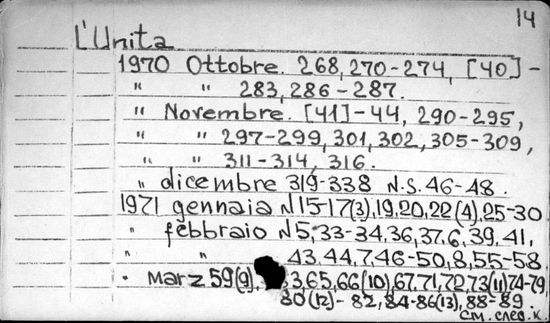 14
L'Unita
1970 Ottobre. 268, 270-274, [40]-
" " 283, 286-287.
" Novembre. [41]-44, 290-295,
" " 297-299, 301, 302, 305-309,
" " 311-314, 316.
" dicembre 319-338 N.S. 46-48.
1971 gennaia N 15-17(3), 19, 20, 22(4), 25-30
" febbraio N 5, 33-34, 36, 37, 6, 39, 41,
" " 43, 44, 7, 46-50, 8, 55-58
" marz 59(9), 3, 65, 66(10), 67, 71, 72, 73(11) 74-79,
80(12)-82, 84-86(13), 88-89.
см. след. к.